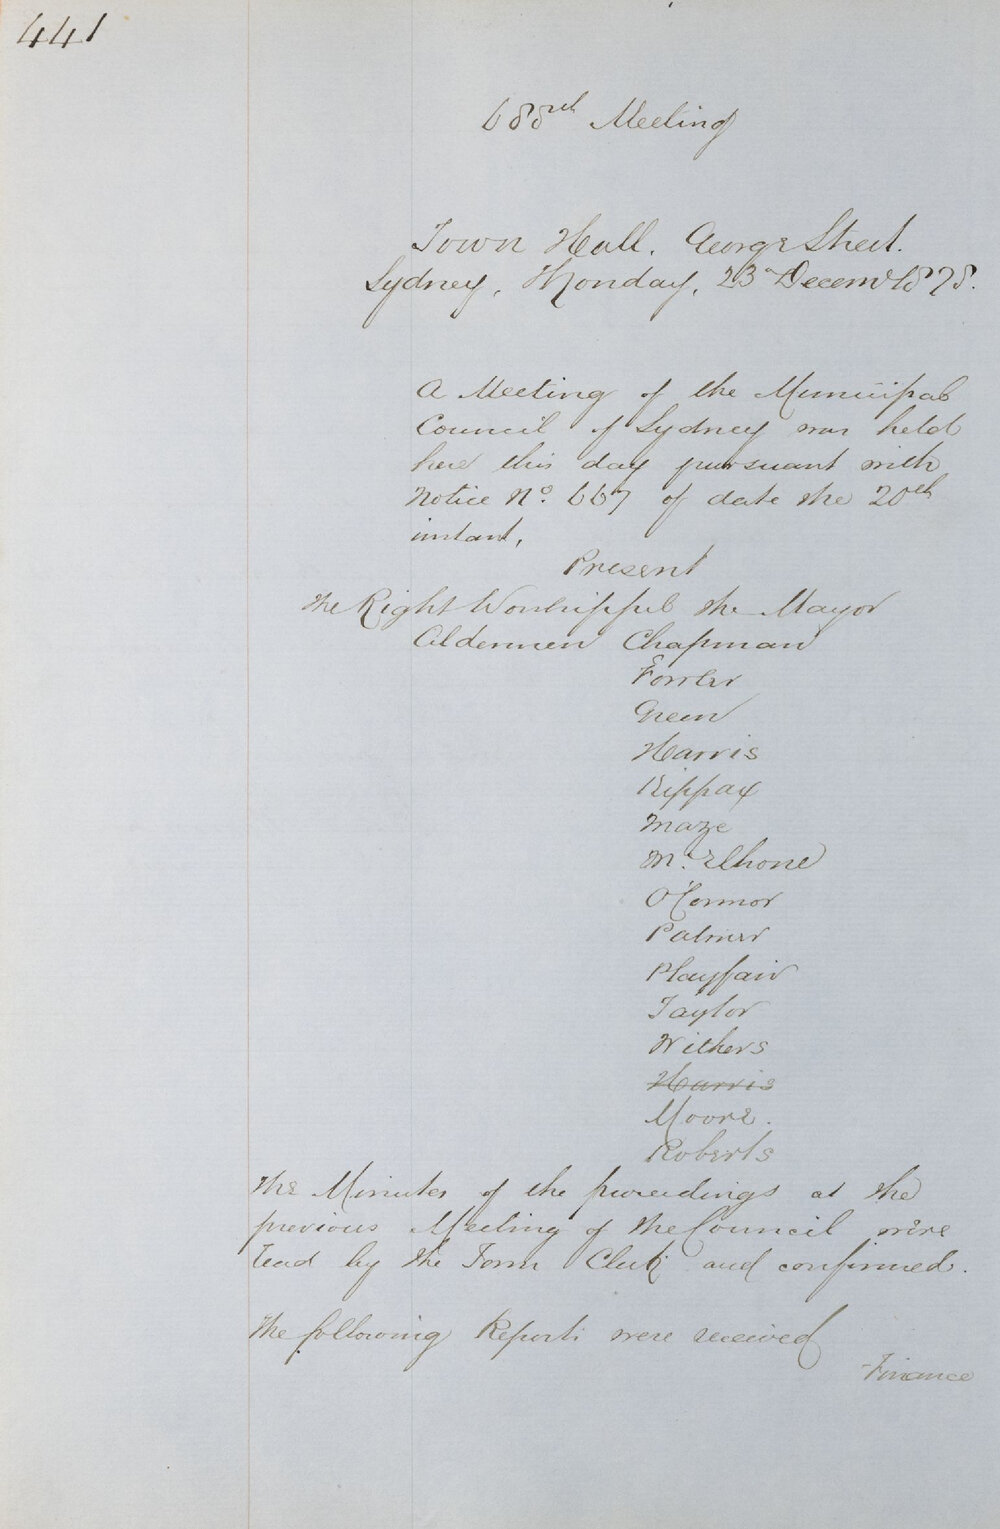 441
688th Meeting
Town Hall. George Street.
Sydney, Monday, 23rd Decemr 1878.
A Meeting of the Municipal
Council of Sydney was held
here this day pursuant with
Notice No. 667 of date the 20th
instant,
Present
The Right Worshipful the Mayor
Aldermen Chapman
Fowler
Green
Harris
Kippax
Maze
Mc.Elhone
O'Connor
Palmer
Playfair
Taylor
Withers
Harris
Moore.
Roberts
The Minutes of the proceedings at the
previous Meeting of the Council were
read by the Town Clerk and confirmed.
The following Reports were received
Finance